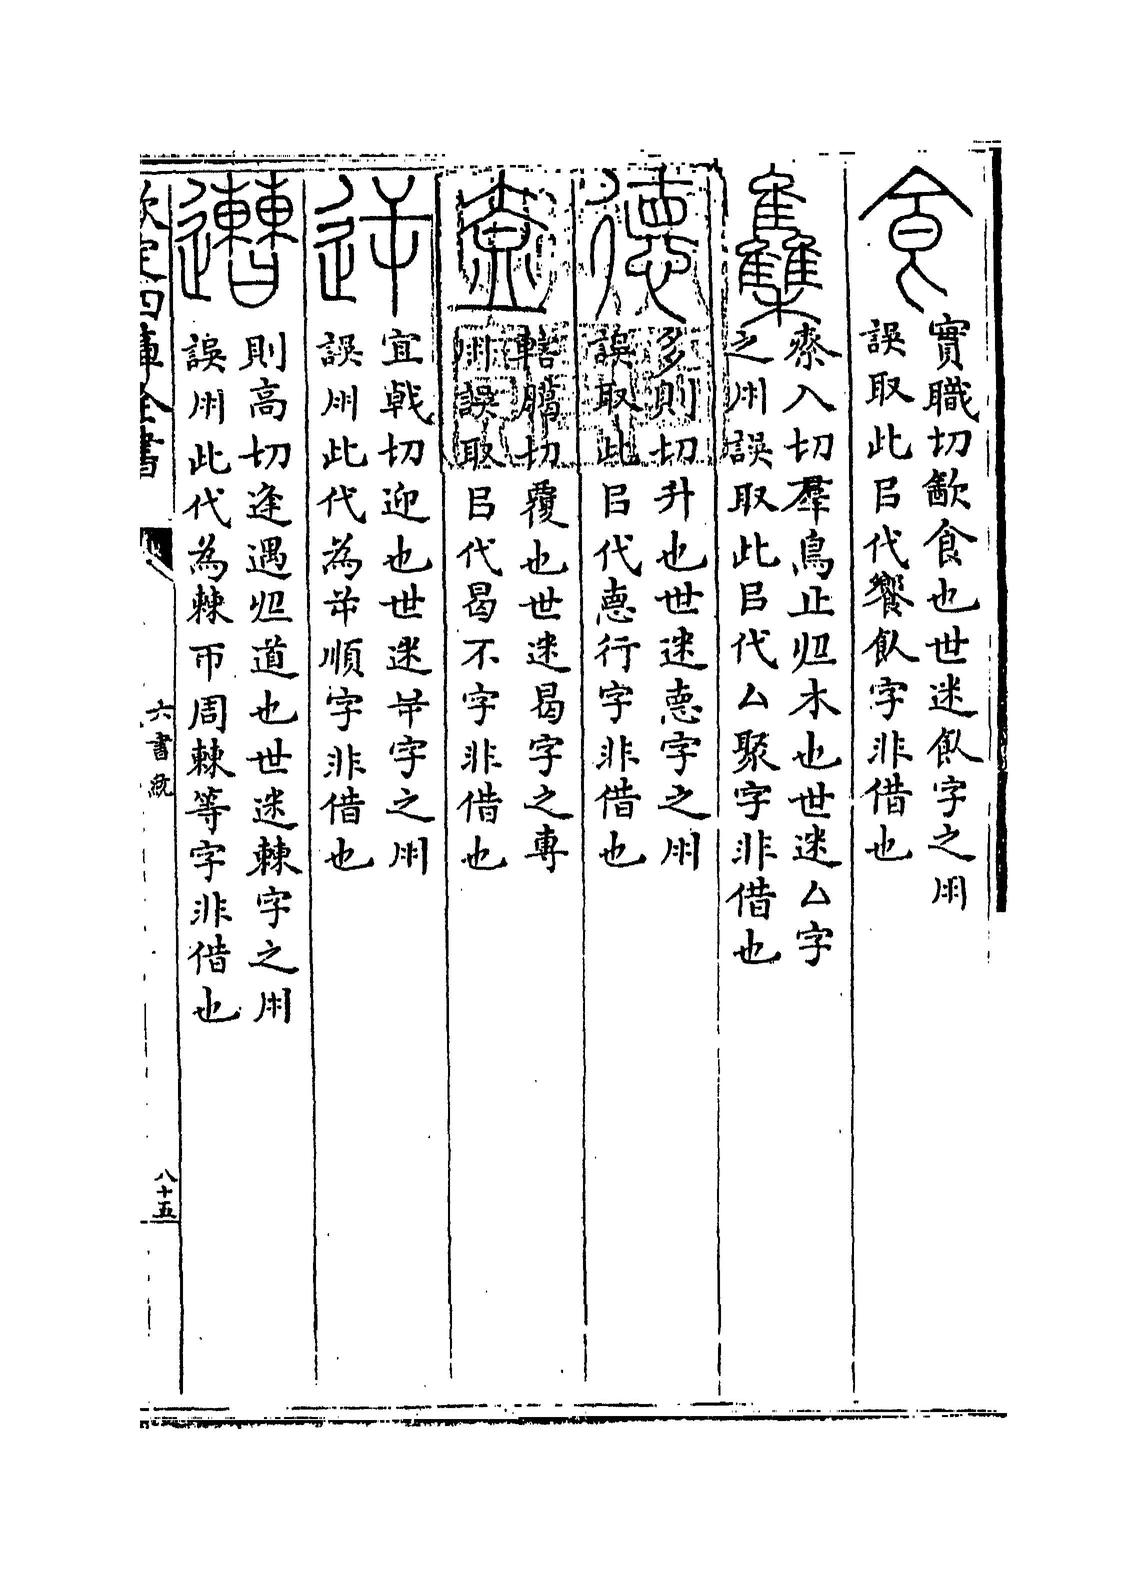 食
實職切歠食也世迷飤字之用
誤取此㠯代饗飤字非借也
雧
秦入切羣鳥止𢓊木也世迷亼字
之用誤取此㠯代亼聚字非借也
德
多則切升也世迷悳字之用
誤取此㠯代悳行字非借也
盍
轄臈切覆也世迷曷字之專
用誤取㠯代曷不字非借也
逆
宜戟切迎也世迷屰字之用
誤用此代為屰順字非借也
遭
則高切逢遇𢓊道也世迷㯥字之用
誤用此代為㯥帀周㯥等字非借也
欽定四庫全書
六書統
八十五